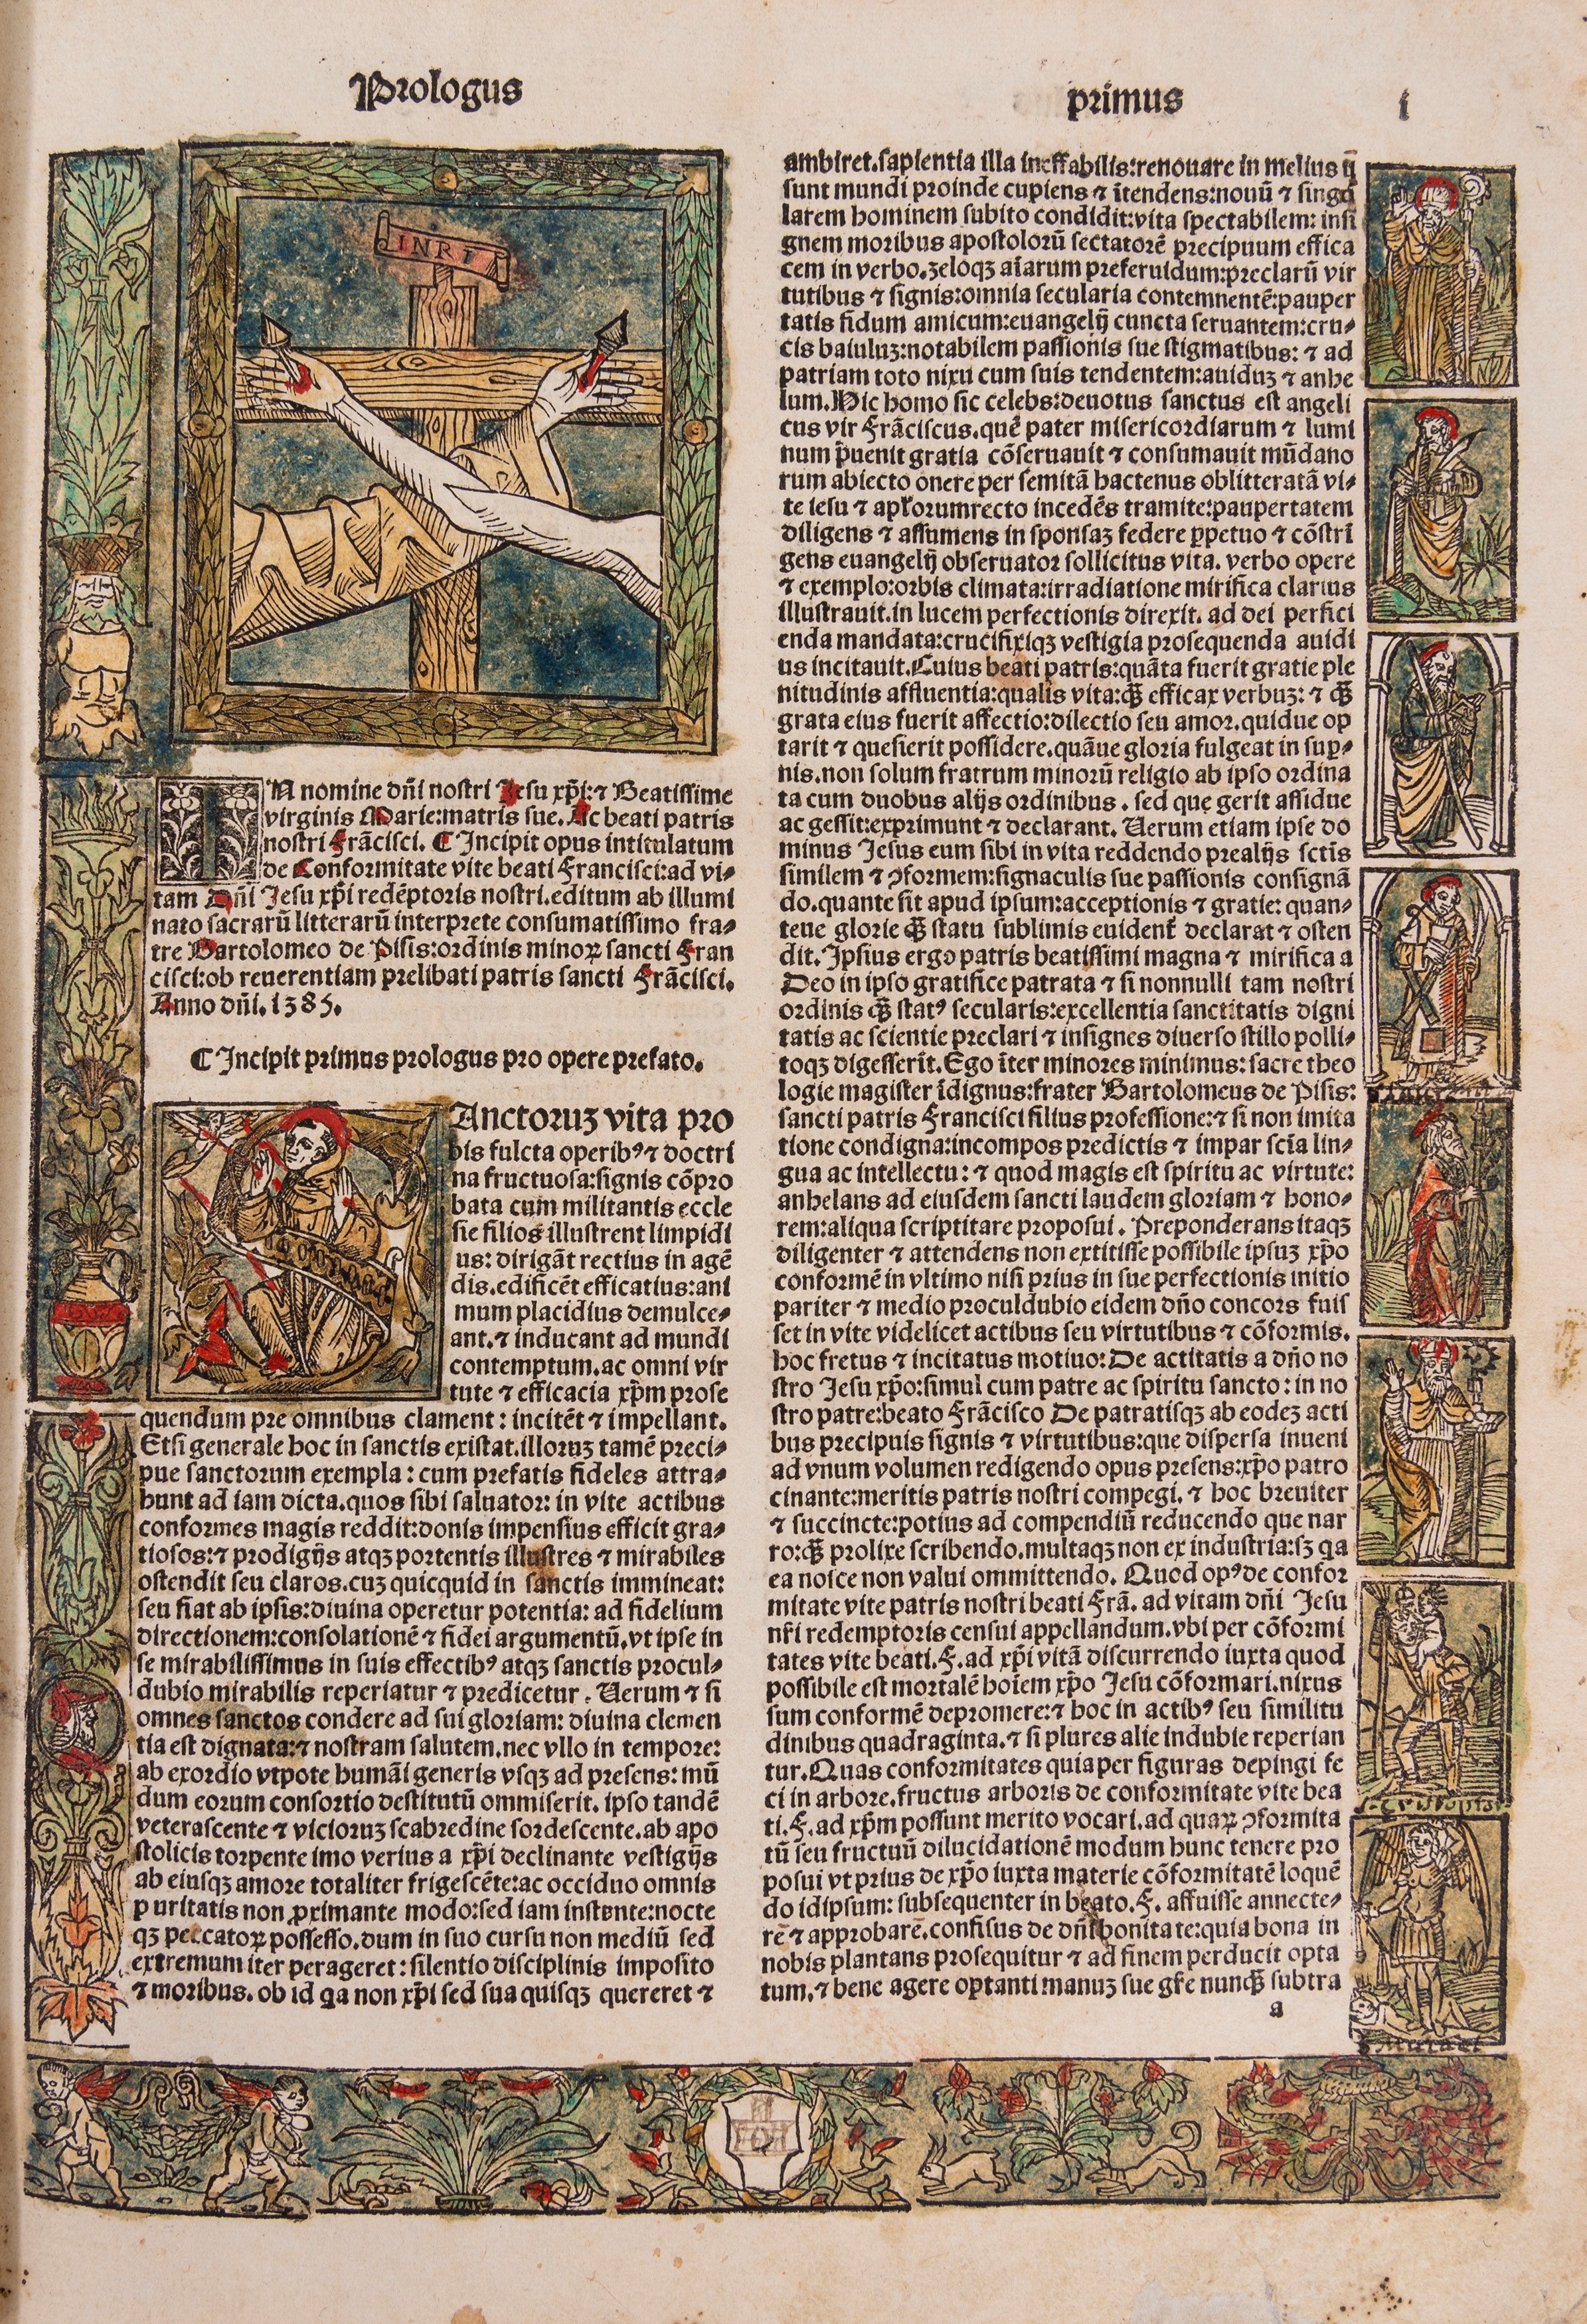 Prologus
primus
i
INRI
IN nomine dñi nostri Jesu xp̄i:⁊ Beatissime
virginis Marie:matris sue. Ac beati patris
nostri Frãcisci. ¶ Incipit opus intitulatum
de Conformitate vite beati Francisci:ad vi-
tam Dñi Jesu xp̄i redẽptoris nostri.editum ab illumi
nato sacrarũ litterarũ interprete consumatissimo fra-
tre Bartolomeo de Pisis:ordinis minoꝝ sancti Fran
cisci:ob reuerentiam prelibati patris sancti Frãcisci.
Anno dñi. 1385.
¶ Incipit primus prologus pro opere prefato.
SAnctoruꝫ vita pro
bis fulcta operibꝰ⁊ doctri
na fructuosa:signis cõpro
bata cum militantis eccle
sie filios illustrent limpidi
us: dirigãt rectius in agẽ
dis.edificẽt efficatius:ani
mum placidius demulce-
ant.⁊ inducant ad mundi
contemptum.ac omni vir
tute ⁊ efficacia xp̄m prose
quendum pre omnibus clament: incitẽt ⁊ impellant.
Etsi generale hoc in sanctis existat.illoruꝫ tamẽ preci-
pue sanctorum exempla: cum prefatis fideles attra-
hunt ad iam dicta.quos sibi saluator: in vite actibus
conformes magis reddit:donis impensius efficit gra-
tiosos:⁊ prodigijs atqꝫ portentis illustres ⁊ mirabiles
ostendit seu claros.cuꝫ quicquid in sanctis immineat:
seu fiat ab ipsis:diuina operetur potentia: ad fidelium
directionem:consolationẽ ⁊ fidei argumentũ.vt ipse in
se mirabilissimus in suis effectibꝰ atqꝫ sanctis procul-
dubio mirabilis reperiatur ⁊ predicetur. Uerum ⁊ si
omnes sanctos condere ad sui gloriam: diuina clemen
tia est dignata:⁊ nostram salutem.nec vllo in tempore:
ab exordio vtpote humãi generis vsqꝫ ad presens: mũ
dum eorum consortio destitutũ ommiserit. ipso tandẽ
veterascente ⁊ vicioruꝫ scabredine sordescente.ab apo
stolicis torpente imo verius a xp̄i declinante vestigijs
ab eiusqꝫ amore totaliter frigescẽte:ac occiduo omnis
puritatis non ꝓximante modo:sed iam instante:nocte
qꝫ peccatoꝝ possesso.dum in suo cursu non mediũ sed
extremum iter perageret: silentio disciplinis imposito
⁊ moribus. ob id qa non xp̄i sed sua quisqꝫ quereret ⁊
ambiret.sapientia illa ineffabilis:renouare in melius q̄
sunt mundi proinde cupiens ⁊ ĩtendens:nouũ ⁊ singu
larem hominem subito condidit:vita spectabilem: insi
gnem moribus apostolorũ sectatorẽ precipuum effica
cem in verbo.ꝫeloqꝫ aĩarum preferuidum:preclarũ vir
tutibus ⁊ signis:omnia secularia contemnentẽ:pauper
tatis fidum amicum:euangelij cuncta seruantem:cru-
cis baiuluꝫ:notabilem passionis sue stigmatibus: ⁊ ad
patriam toto nixu cum suis tendentem:auiduꝫ ⁊ anhe
lum. Hic homo sic celebs:deuotus sanctus est angeli
cus vir Frãciscus.quẽ pater misericordiarum ⁊ lumi
num p̃uenit gratia cõseruauit ⁊ consumauit mũdano
rum abiecto onere per semitã hactenus oblitteratã vi-
te iesu ⁊ aplʼorum recto incedẽs tramite:paupertatem
diligens ⁊ assumens in sponsaꝫ federe ꝑpetuo ⁊ cõstrĩ
gens euangelij obseruator sollicitus vita. verbo opere
⁊ exemplo:orbis climata:irradiatione mirifica clarius
illustrauit.in lucem perfectionis direxit. ad dei perfici
enda mandata:crucifixiqꝫ vestigia prosequenda auidi
us incitauit. Cuius beati patris:quãta fuerit gratie ple
nitudinis affluentia:qualis vita:q̃ꝫ efficax verbuꝫ: ⁊ q̃ꝫ
grata eius fuerit affectio:dilectio seu amor.quidue op
tarit ⁊ quesierit possidere.quãue gloria fulgeat in suꝑ-
nis.non solum fratrum minorũ religio ab ipso ordina
ta cum duobus alijs ordinibus. sed que gerit assidue
ac gessit:exprimunt ⁊ declarant. Uerum etiam ipse do
minus Jesus eum sibi in vita reddendo prealijs sctĩs
similem ⁊ ꝯformem:signaculis sue passionis consignã
do.quante sit apud ipsum:acceptionis ⁊ gratie: quan-
teue glorie q̃ꝫ statu sublimis euidentʼ declarat ⁊ osten
dit. Ipsius ergo patris beatissimi magna ⁊ mirifica a
Deo in ipso gratifice patrata ⁊ si nonnulli tam nostri
ordinis q̃ꝫ statꝰ secularis:excellentia sanctitatis digni
tatis ac scientie preclari ⁊ insignes diuerso stillo polli-
toqꝫ digesserit. Ego ĩter minores minimus: sacre theo
logie magister ĩdignus:frater Bartolomeus de Pisis:
sancti patris Francisci filius professione:⁊ si non imita
tione condigna:incompos predictis ⁊ impar scĩa lin-
gua ac intellectu: ⁊ quod magis est spiritu ac virtute:
anhelans ad eiusdem sancti laudem gloriam ⁊ hono-
rem:aliqua scriptitare proposui. Preponderans itaqꝫ
diligenter ⁊ attendens non extitisse possibile ipsuꝫ xp̄o
conformẽ in vltimo nisi prius in sue perfectionis initio
pariter ⁊ medio proculdubio eidem dño concors fuis
set in vite videlicet actibus seu virtutibus ⁊ cõformis.
hoc fretus ⁊ incitatus motiuo: De actitatis a dño no
stro Jesu xp̄o:simul cum patre ac spiritu sancto: in no
stro patre:beato Frãcisco De patratisqꝫ ab eodeꝫ acti
bus precipuis signis ⁊ virtutibus:que dispersa inueni
ad vnum volumen redigendo opus presens:xp̄o patro
cinante:meritis patris nostri compegi. ⁊ hoc breuiter
⁊ succincte:potius ad compendiũ reducendo que nar
ro:q̃ꝫ prolixe scribendo.multaqꝫ non ex industria:sꝫ qa
ea nosce non valui ommittendo. Quod opꝰ de confor
mitate vite patris nostri beati Frã. ad vitam dñi Jesu
nr̃i redemptoris censui appellandum.vbi per cõformi
tates vite beati. F. ad xp̄i vitã discurrendo iuxta quod
possibile est mortalẽ hoĩem xp̄o Jesu cõformari.nixus
sum conformẽ depromere:⁊ hoc in actibꝰ seu similitu
dinibus quadraginta.⁊ si plures alie indubie reperian
tur. Quas conformitates quia per figuras depingi fe
ci in arbore.fructus arboris de conformitate vite bea
ti. F. ad xp̄m possunt merito vocari.ad quaꝝ ꝯformita
tũ seu fructuũ dilucidationẽ modum hunc tenere pro
posui vt prius de xp̄o iuxta materie cõformitatẽ loquẽ
do idipsum: subsequenter in beato. F. affuisse annecte-
rẽ ⁊ approbarẽ.confisus de dñi bonitate:quia bona in
nobis plantans prosequitur ⁊ ad finem perducit opta
tum.⁊ bene agere optanti manuꝫ sue gr̃e nunq̃ꝫ subtra
a